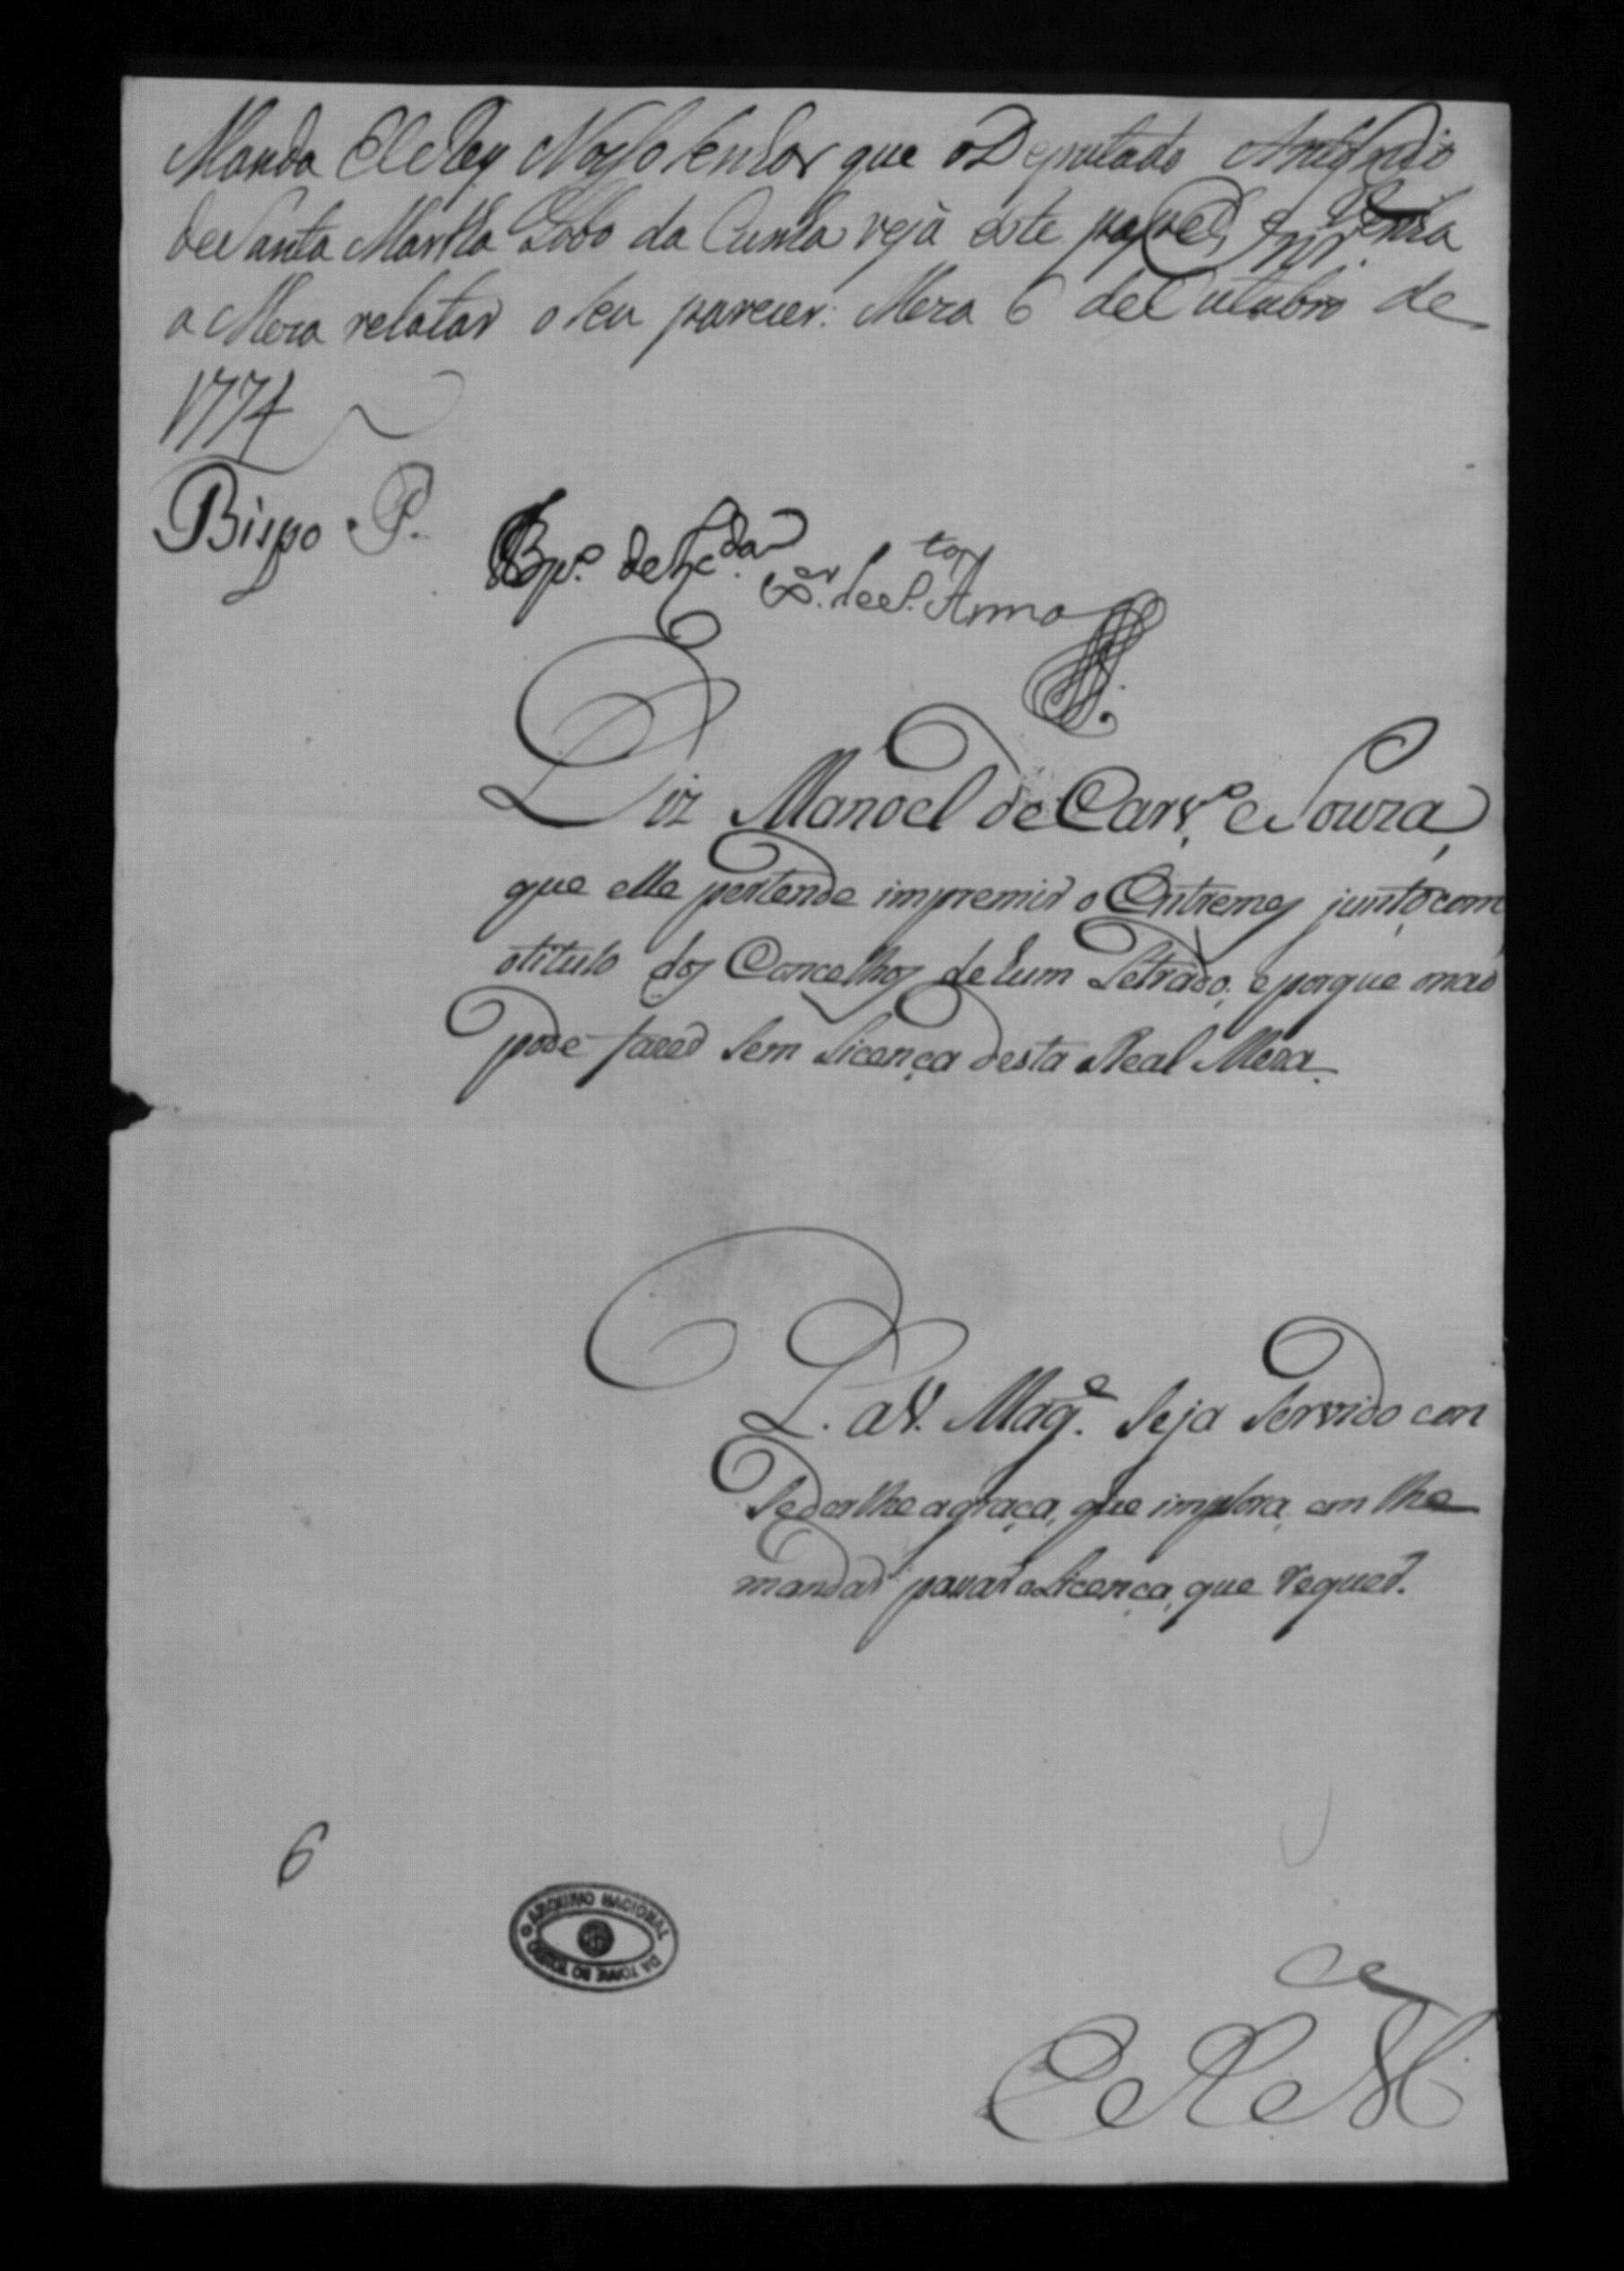 Manda ElRey Nosso Senhor que o Deputado Antonio
de Santa Martha Lobo da Cunha vejà este papel, e venha
a Meza relatar o seu parecer: Meza 6 de Outubro de
1774
Bispo P.
Diz Manoel de Carv.º e Souza,
que elle pertende impremir o Entremes junto, com
o titulo dos Concelhos de hum Letrado; e porque o naõ
pode fazer sem Licença desta Real Meza.
P. a V. Mag.e seja servido con
sederlhe a graça, que implora, em lhe
mandar passar a Licença, que requer.
6
ARQUIVO NACIONAL
DA TORRE DO TOMBO
E R M ce